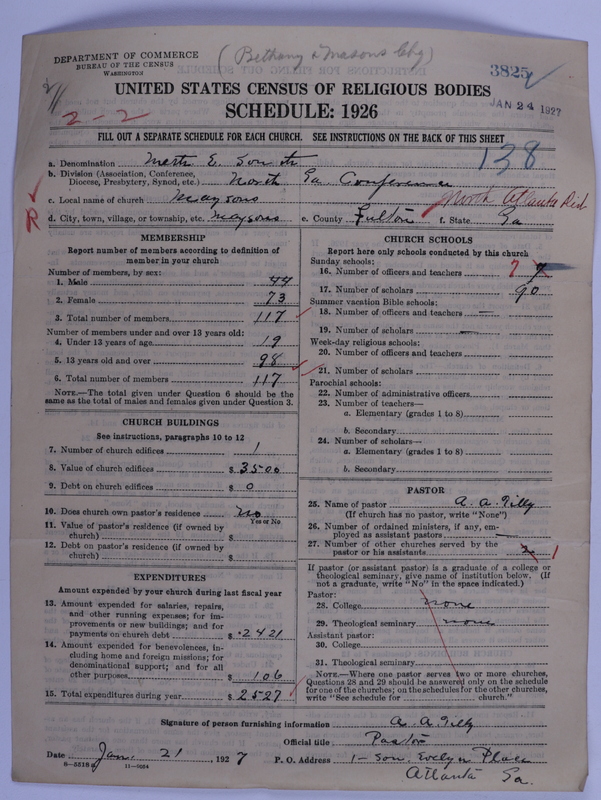 DEPARTMENT OF COMMERCE
BUREAU OF THE CENSUS
WASHINGTON
(Bethany & Masons Chg)
3825
JAN 24 1927
UNITED STATES CENSUS OF RELIGIOUS BODIES
SCHEDULE: 1926
2-2
FILL OUT A SEPARATE SCHEDULE FOR EACH CHURCH. SEE INSTRUCTIONS ON THE BACK OF THIS SHEET
138
a. Denomination Meth E. South
b. Division (Association, Conference, Diocese, Presbytery, Synod, etc.) North Ga Conference
North Atlanta Dist
c. Local name of church Maysons
R
d. City, town, village, or township, etc. Maysons e. County Fulton f. State Ga
MEMBERSHIP
Report number of members according to definition of
member in your church
Number of members, by sex:
1. Male 44
2. Female 73
3. Total number of members 117
Number of members under and over 13 years old:
4. Under 13 years of age 19
5. 13 years old and over 98
6. Total number of members 117
NOTE.—The total given under Question 6 should be
same as the total of males and females given under Question 3.
CHURCH BUILDINGS
See instructions, paragraphs 10 to 12
7. Number of church edifices 1
8. Value of church edifices $ 3500
9. Debt on church edifices $ 0
10. Does church own pastor's residence No
Yes or No
11. Value of pastor's residence (if owned by
church) $
12. Debt on pastor's residence (if owned by
church) $
EXPENDITURES
Amount expended by your church during last fiscal year
13. Amount expended for salaries, repairs,
and other running expenses; for im-
provements or new buildings; and for
payments on church debt $ 2421
14. Amount expended for benevolences, in-
cluding home and foreign missions; for
denominational support; and for all
other purposes $ 106
15. Total expenditures during year $ 2527
CHURCH SCHOOLS
Report here only schools conducted by this church
Sunday schools:
16. Number of officers and teachers 7
17. Number of scholars 90
Summer vacation Bible schools:
18. Number of officers and teachers —
19. Number of scholars —
Week-day religious schools:
20. Number of officers and teachers
21. Number of scholars
Parochial schools:
22. Number of administrative officers
23. Number of teachers—
a. Elementary (grades 1 to 8)
b. Secondary
24. Number of scholars—
a. Elementary (grades 1 to 8)
b. Secondary
PASTOR
25. Name of pastor A. A. Tilly
(If church has no pastor, write "None")
26. Number of ordained ministers, if any, em-
ployed as assistant pastors —
27. Number of other churches served by the
pastor or his assistants 1
If pastor (or assistant pastor) is a graduate of a college or
theological seminary, give name of institution below. (If
not a graduate, write "No" in the space indicated.)
Pastor:
28. College none
29. Theological seminary none
Assistant pastor:
30. College
31. Theological seminary
NOTE.—Where one pastor serves two or more churches,
Questions 28 and 29 should be answered only on the schedule
for one of the churches; on the schedules for the other churches,
write "See schedule for church."
Signature of person furnishing information A. A. Tilly
Official title Pastor
Date Jan. 21, 1927 P. O. Address 1-Son. Evelyn Place
Atlanta Ga.
8-5518a 11-9084